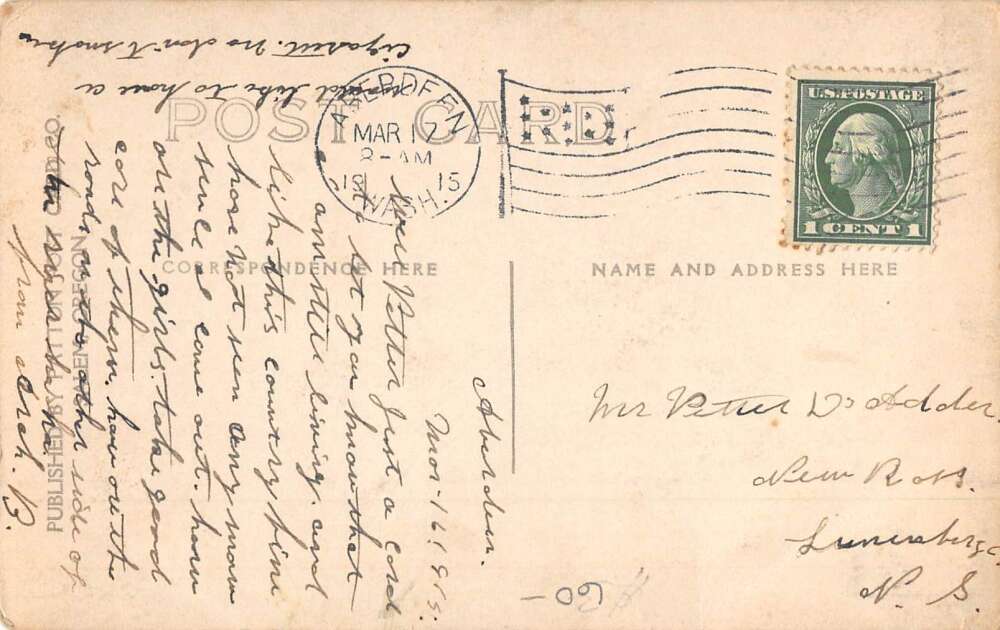 POST CARD
ABERDEEN
MAR 17
8-AM
1915
WASH.
U.S. POSTAGE
1 CENT 1
CORRESPONDENCE HERE
NAME AND ADDRESS HERE
PUBLISHED BY PATTON POST CARD CO.
SALEM, OREGON
Aberdeen.
Mar-16-1915.
Well Petter Just a Card
to let you know that
am still living. and
like this country fine
have not seen any more
come out. how
are the girls. take good
care of them. how are the
roads
from Arch. B.
would like to have a
no don't smoke
Mr Petter D. Adder,
New Ross.
Lunenberg Co
N. S.
60-